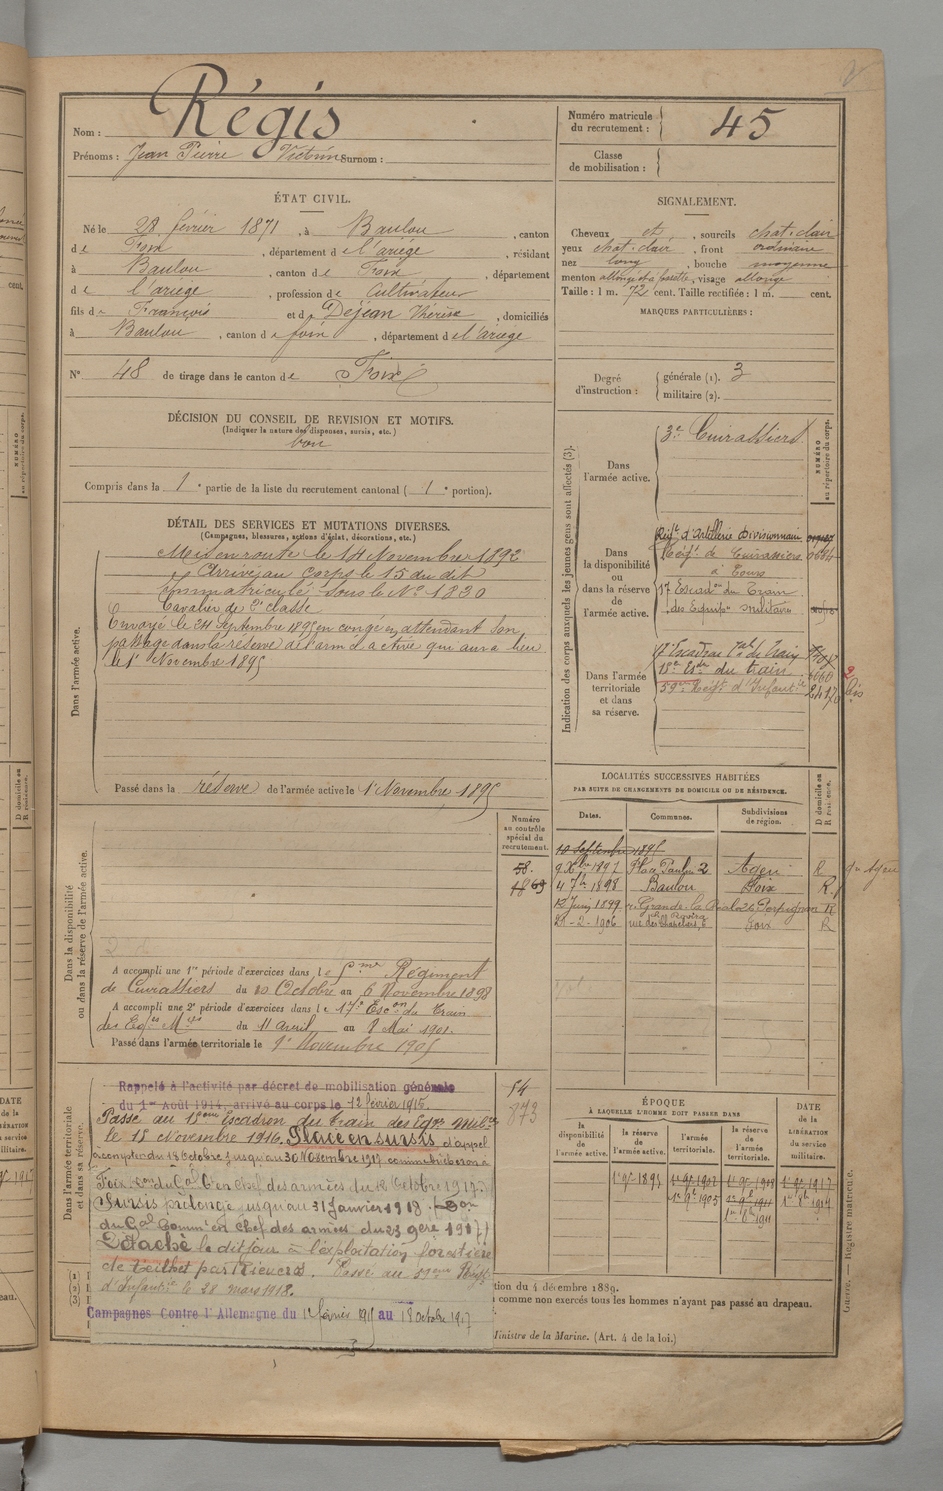 Nom : Régis
Prénoms : Jean Pierre Victrin Surnom :
Numéro matricule
du recrutement : 45
Classe
de mobilisation :
ÉTAT CIVIL.
Né le 28 février 1871, à Baulou, canton
de Foix, département de l'ariége, résidant
à Baulou, canton de Foix, département
de l'ariège, profession de Cultivateur
fils de François et de Déjean Thérèse, domiciliés
à Baulou, canton de foix, département de l'ariège
N° 48 de tirage dans le canton de Foix
SIGNALEMENT.
Cheveux et, sourcils chat. clair
yeux chat. clair, front ordinaire
nez long, bouche moyenne
menton allongé et à fossette, visage allongé
Taille : 1 m. 72 cent. Taille rectifiée : 1 m. cent.
MARQUES PARTICULIÈRES :
Degré
d'instruction :
générale (1). 3
militaire (2).
DÉCISION DU CONSEIL DE REVISION ET MOTIFS.
(Indiquer la nature des dispenses, sursis, etc.)
bon
Compris dans la 1e partie de la liste du recrutement cantonal (1e portion).
DÉTAIL DES SERVICES ET MUTATIONS DIVERSES.
(Campagnes, blessures, actions d'éclat, décorations, etc.)
Dans l'armée active.
Mis en route le 14 Novembre 1892
Arrivé au corps le 15 du dit
Immatriculé sous le N° 1830
Cavalier de 2e classe
Envoyé le 24 Septembre 1895 en congé en attendant son
passage dans la réserve de l'armée active qui aura lieu
le 1er Novembre 1895
Passé dans la réserve de l'armée active le 1er Novembre 1895
Indication des corps auxquels les jeunes gens sont affectés (3).
NUMÉRO
au répertoire du corps.
Dans
l'armée active.
3e Cuirassiers
Dans
la disponibilité
ou
dans la réserve
de
l'armée active.
Régt d'Artillerie Divisionnaire
Régt. de Cuirassiers 0684
à Tours
17 Escadon du Train
des Equips Militaire
Dans l'armée
territoriale
et dans
sa réserve.
17 Escadron du Train
18e Esdn du train 6060
59e Régt d'Infanterie 2417 bis
LOCALITÉS SUCCESSIVES HABITÉES
PAR SUITE DE CHANGEMENTS DE DOMICILE OU DE RÉSIDENCE.
Dates. Communes. Subdivisions de région. D domicile ou R résidence.
10 Septembre 1895
9 Xbre 1897 Place Paulin 2 Agen R
4 7bre 1898 Baulou Foix R
12 Juin 1899 Perpignan R
21-2-1906 rue des Chapeliers, 6 Foix R
Numéro
au contrôle
spécial du
recrutement.
58.
1869
Dans la disponibilité
ou dans la réserve de l'armée active.
A accompli une 1re période d'exercices dans le 9me Régiment
de Cuirassiers du 10 Octobre au 6 Novembre 1898
A accompli une 2e période d'exercices dans le 17e Escon du Train
des Eqes Mres du 11 avril au 8 Mai 1901.
Passé dans l'armée territoriale le 1er Novembre 1905
Dans l'armée territoriale
et dans sa réserve.
Rappelé à l'activité par décret de mobilisation générale
du 1er Août 1914, arrivé au corps le 12 février 1915.
Passé au 18eme Escadron du Train des Eqes Milres
le 18 Novembre 1916. Placé en sursis d'appel
à compter du 18 Octobre jusqu'au 30 Novembre 1917 comme bûcheron à
Foix Don du Gal Ct en chef des armées du 12 Octobre 1917.
Sursis prolongé jusqu'au 31 Janvier 1918. (Don
du Gal Commt en chef des armées du 23 9bre 1917)
Détaché le dit jour à l'exploitation forestière
de Teilhet par Rieucros. Passé au 59eme Régt
d'Infanterie le 28 mars 1918.
Campagnes Contre l'Allemagne du 12 février 1915 au 18 octobre 1917
54
843
ÉPOQUE
À LAQUELLE L'HOMME DOIT PASSER DANS
la disponibilité de l'armée active.
la réserve de l'armée active.
l'armée territoriale.
la réserve de l'armée territoriale.
DATE de la LIBÉRATION du service militaire.
1er 9bre 1895 1er 9bre 1902 1er 9bre 1908 1er 9bre 1917
1er 9bre 1905 1er 9bre 1911 1er 8bre 1917
1er 8bre 1911
tion du 4 décembre 1889.
comme non exercés tous les hommes n'ayant pas passé au drapeau.
Ministre de la Marine. (Art. 4 de la loi.)
Guerre. — Registre matricule.